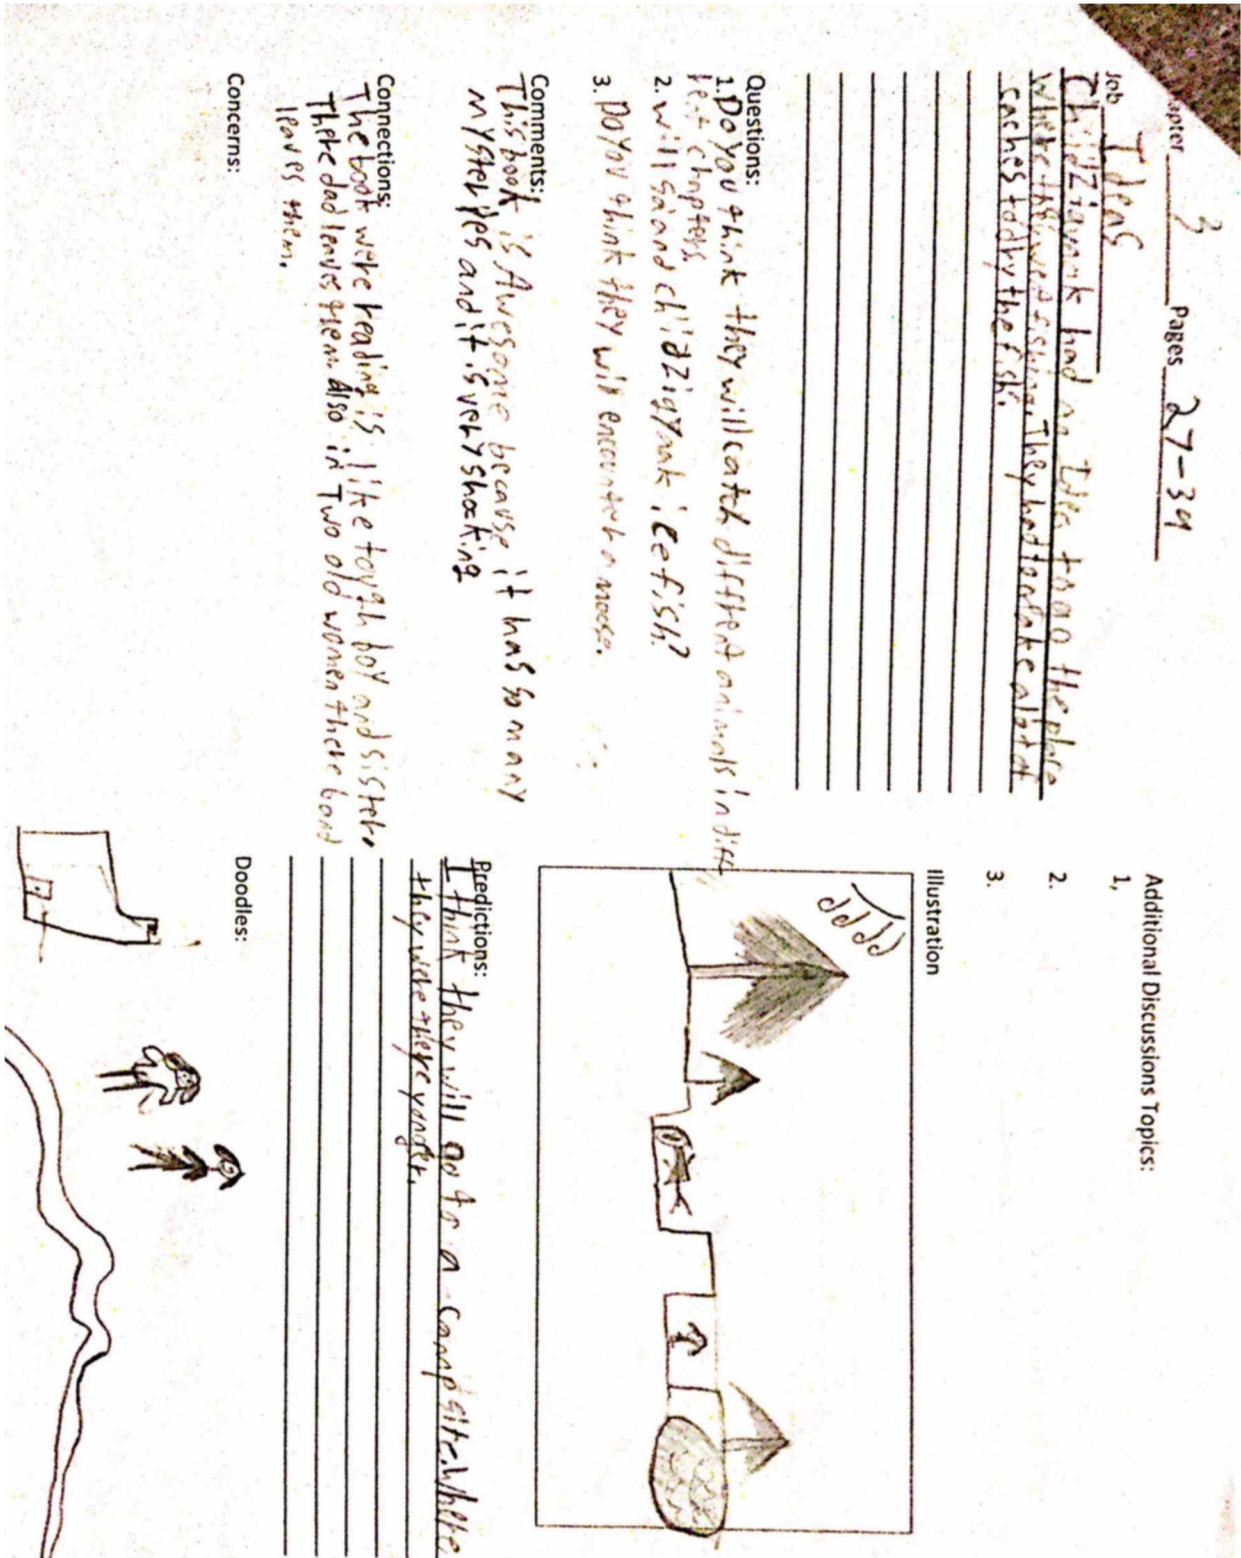 apter 3 Pages 27-39
Job Ideas
Chidzigyaak had an Idea to go the place
where they were fishing. They had to make alot of
caches to dry the fish.
Questions:
1. Do you think they will catch diffrent animals in diff
rent chapters.
2. will sa and chidzigyaak ice fish?
3. Do you think they will encounter a moose.
Comments:
This book is Awesome because it has so many
mysteryes and it is very shocking
Connections:
The book were reading is like tough boy and sister.
There dad leaves them. Also in Two old women there band
leaves them.
Concerns:
Additional Discussions Topics:
1,
2.
3.
Illustration
Predictions:
I think they will go to a campsite. Where
they were there younger.
Doodles: